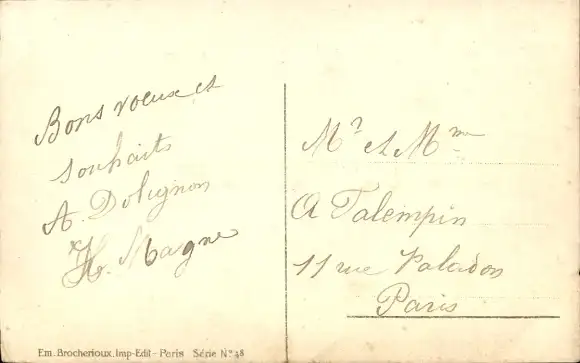 Bons voeux et
souhaits
A. Dolignon
H. Magne
Mr et Mme
A Talempin
11 rue Paladon
Paris
Em. Brocherioux, Imp-Edit - Paris Série No 48